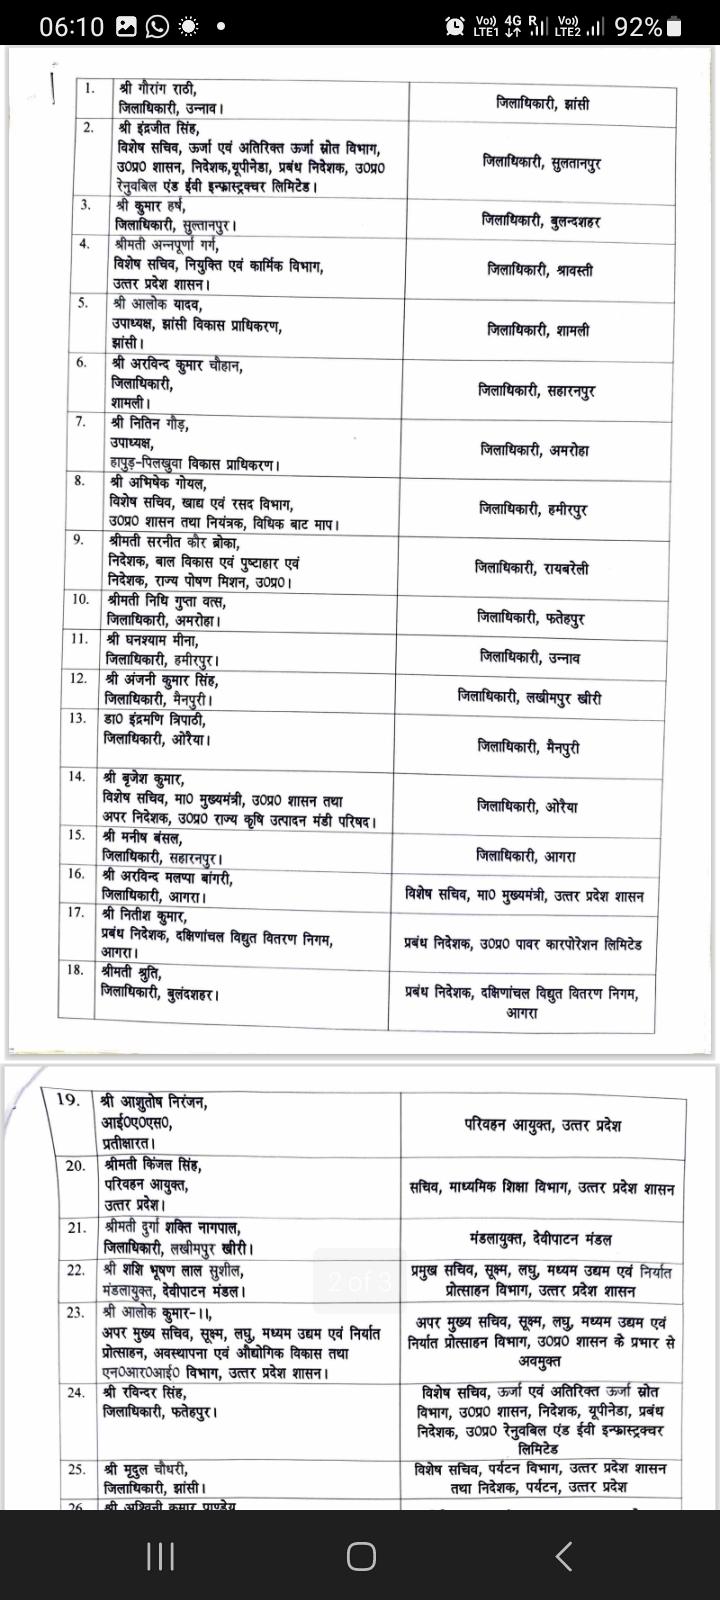 06:10
Vo)) 4G R Vo))
LTE1 LTE2 92%
1. श्री गौरांग राठी,
जिलाधिकारी, उन्नाव।
जिलाधिकारी, झांसी
2. श्री इंद्रजीत सिंह,
विशेष सचिव, ऊर्जा एवं अतिरिक्त ऊर्जा स्रोत विभाग,
उ0प्र0 शासन, निदेशक,यूपीनेडा, प्रबंध निदेशक, उ0प्र0
रेनुवबिल एंड ईवी इन्फ्रास्ट्रक्चर लिमिटेड।
जिलाधिकारी, सुलतानपुर
3. श्री कुमार हर्ष,
जिलाधिकारी, सुल्तानपुर।
जिलाधिकारी, बुलन्दशहर
4. श्रीमती अन्नपूर्णा गर्ग,
विशेष सचिव, नियुक्ति एवं कार्मिक विभाग,
उत्तर प्रदेश शासन।
जिलाधिकारी, श्रावस्ती
5. श्री आलोक यादव,
उपाध्यक्ष, झांसी विकास प्राधिकरण,
झांसी।
जिलाधिकारी, शामली
6. श्री अरविन्द कुमार चौहान,
जिलाधिकारी,
शामली।
जिलाधिकारी, सहारनपुर
7. श्री नितिन गौड़,
उपाध्यक्ष,
हापुड़-पिलखुवा विकास प्राधिकरण।
जिलाधिकारी, अमरोहा
8. श्री अभिषेक गोयल,
विशेष सचिव, खाद्य एवं रसद विभाग,
उ0प्र0 शासन तथा नियंत्रक, विधिक बाट माप।
जिलाधिकारी, हमीरपुर
9. श्रीमती सरनीत कौर ब्रोका,
निदेशक, बाल विकास एवं पुष्टाहार एवं
निदेशक, राज्य पोषण मिशन, उ0प्र0।
जिलाधिकारी, रायबरेली
10. श्रीमती निधि गुप्ता वत्स,
जिलाधिकारी, अमरोहा।
जिलाधिकारी, फतेहपुर
11. श्री घनश्याम मीना,
जिलाधिकारी, हमीरपुर।
जिलाधिकारी, उन्नाव
12. श्री अंजनी कुमार सिंह,
जिलाधिकारी, मैनपुरी।
जिलाधिकारी, लखीमपुर खीरी
13. डा0 इंद्रमणि त्रिपाठी,
जिलाधिकारी, ओरैया।
जिलाधिकारी, मैनपुरी
14. श्री बृजेश कुमार,
विशेष सचिव, मा0 मुख्यमंत्री, उ0प्र0 शासन तथा
अपर निदेशक, उ0प्र0 राज्य कृषि उत्पादन मंडी परिषद।
जिलाधिकारी, ओरैया
15. श्री मनीष बंसल,
जिलाधिकारी, सहारनपुर।
जिलाधिकारी, आगरा
16. श्री अरविन्द मलप्पा बांगरी,
जिलाधिकारी, आगरा।
विशेष सचिव, मा0 मुख्यमंत्री, उत्तर प्रदेश शासन
17. श्री नितीश कुमार,
प्रबंध निदेशक, दक्षिणांचल विद्युत वितरण निगम,
आगरा।
प्रबंध निदेशक, उ0प्र0 पावर कारपोरेशन लिमिटेड
18. श्रीमती श्रुति,
जिलाधिकारी, बुलंदशहर।
प्रबंध निदेशक, दक्षिणांचल विद्युत वितरण निगम,
आगरा
19. श्री आशुतोष निरंजन,
आई0ए0एस0,
प्रतीक्षारत।
परिवहन आयुक्त, उत्तर प्रदेश
20. श्रीमती किंजल सिंह,
परिवहन आयुक्त,
उत्तर प्रदेश।
सचिव, माध्यमिक शिक्षा विभाग, उत्तर प्रदेश शासन
21. श्रीमती दुर्गा शक्ति नागपाल,
जिलाधिकारी, लखीमपुर खीरी।
मंडलायुक्त, देवीपाटन मंडल
22. श्री शशि भूषण लाल सुशील,
मंडलायुक्त, देवीपाटन मंडल।
प्रमुख सचिव, सूक्ष्म, लघु, मध्यम उद्यम एवं निर्यात
प्रोत्साहन विभाग, उत्तर प्रदेश शासन
2 of 3
23. श्री आलोक कुमार-।।,
अपर मुख्य सचिव, सूक्ष्म, लघु, मध्यम उद्यम एवं निर्यात
प्रोत्साहन, अवस्थापना एवं औद्योगिक विकास तथा
एन0आर0आई0 विभाग, उत्तर प्रदेश शासन।
अपर मुख्य सचिव, सूक्ष्म, लघु, मध्यम उद्यम एवं
निर्यात प्रोत्साहन विभाग, उ0प्र0 शासन के प्रभार से
अवमुक्त
24. श्री रविन्दर सिंह,
जिलाधिकारी, फतेहपुर।
विशेष सचिव, ऊर्जा एवं अतिरिक्त ऊर्जा स्रोत
विभाग, उ0प्र0 शासन, निदेशक, यूपीनेडा, प्रबंध
निदेशक, उ0प्र0 रेनुवबिल एंड ईवी इन्फ्रास्ट्रक्चर
लिमिटेड
25. श्री मृदुल चौधरी,
जिलाधिकारी, झांसी।
विशेष सचिव, पर्यटन विभाग, उत्तर प्रदेश शासन
तथा निदेशक, पर्यटन, उत्तर प्रदेश
26. श्री अश्विनी कुमार पाण्डेय